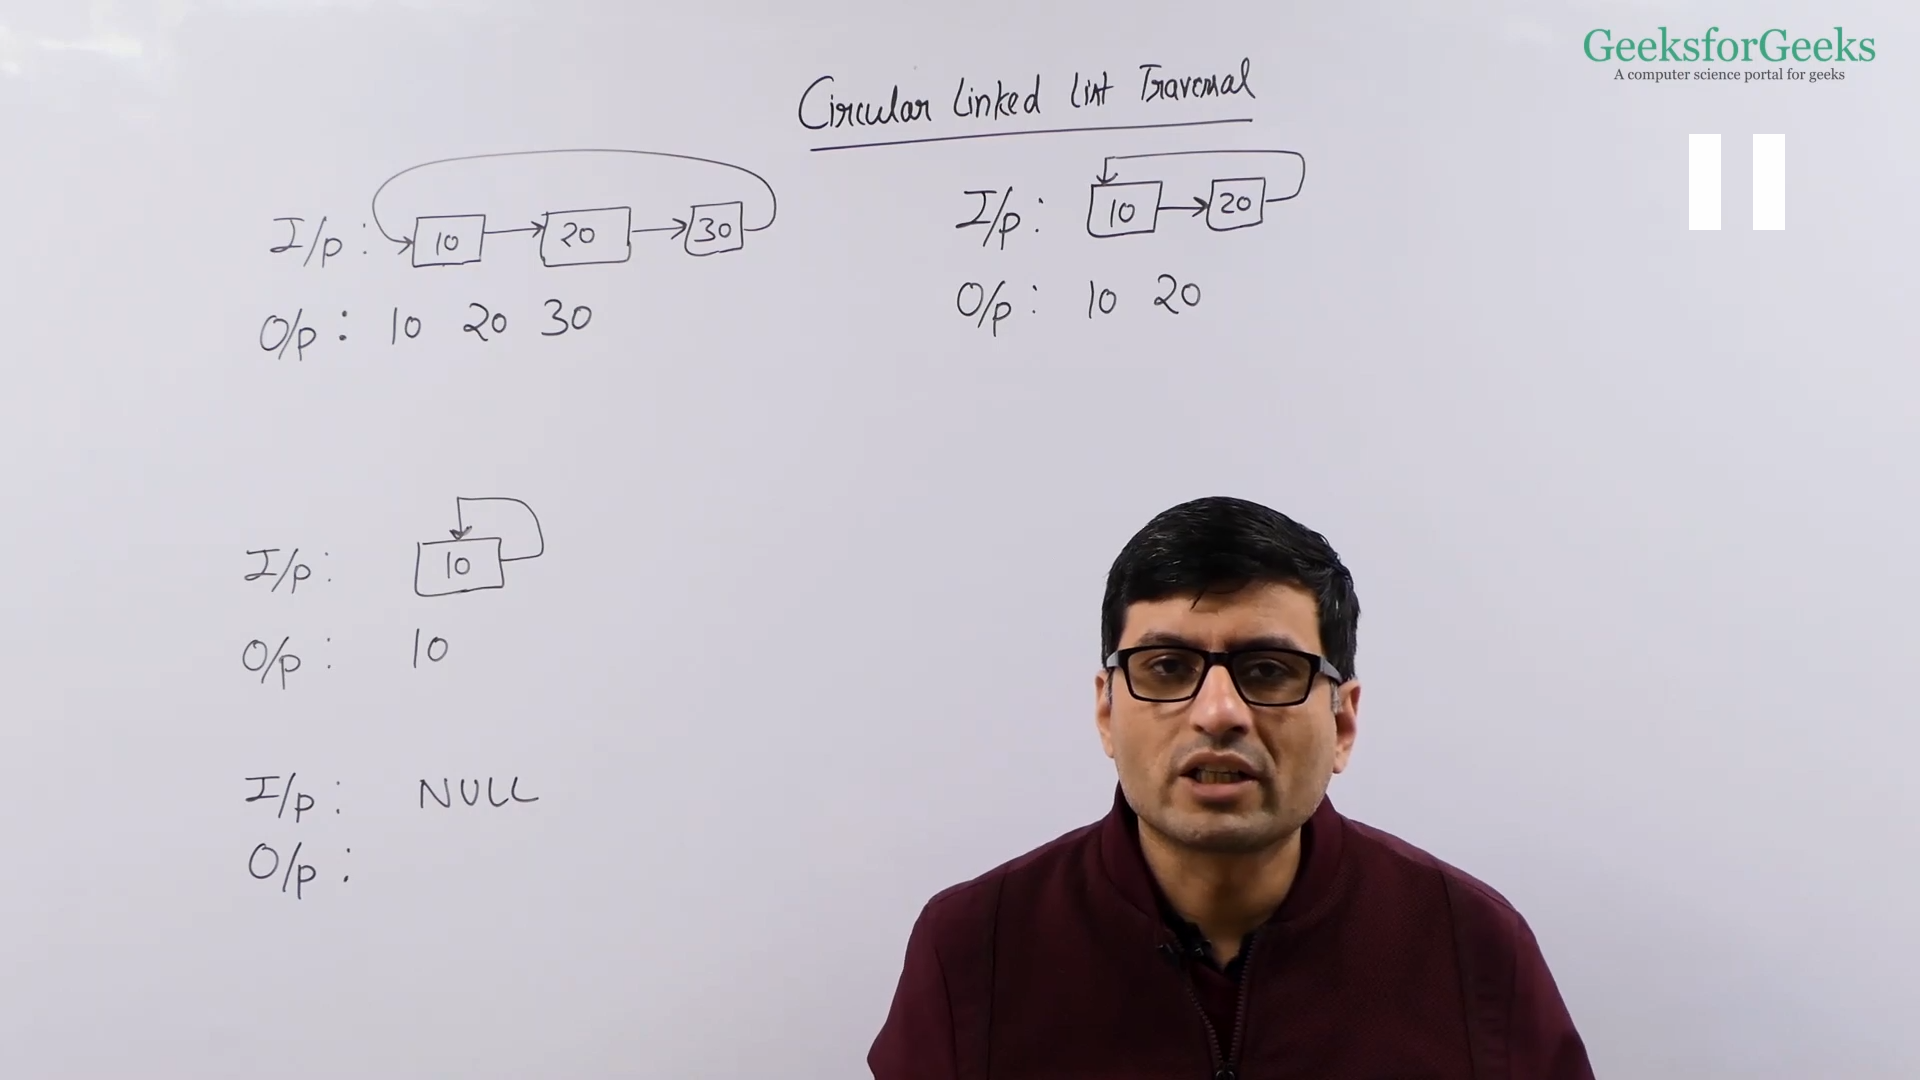 GeeksforGeeks
A computer science portal for geeks
Circular Linked List Traversal
I/p : 10 20 30
O/p : 10 20 30
I/p : 10 20
O/p : 10 20
I/p : 10
O/p : 10
I/p : NULL
O/p :